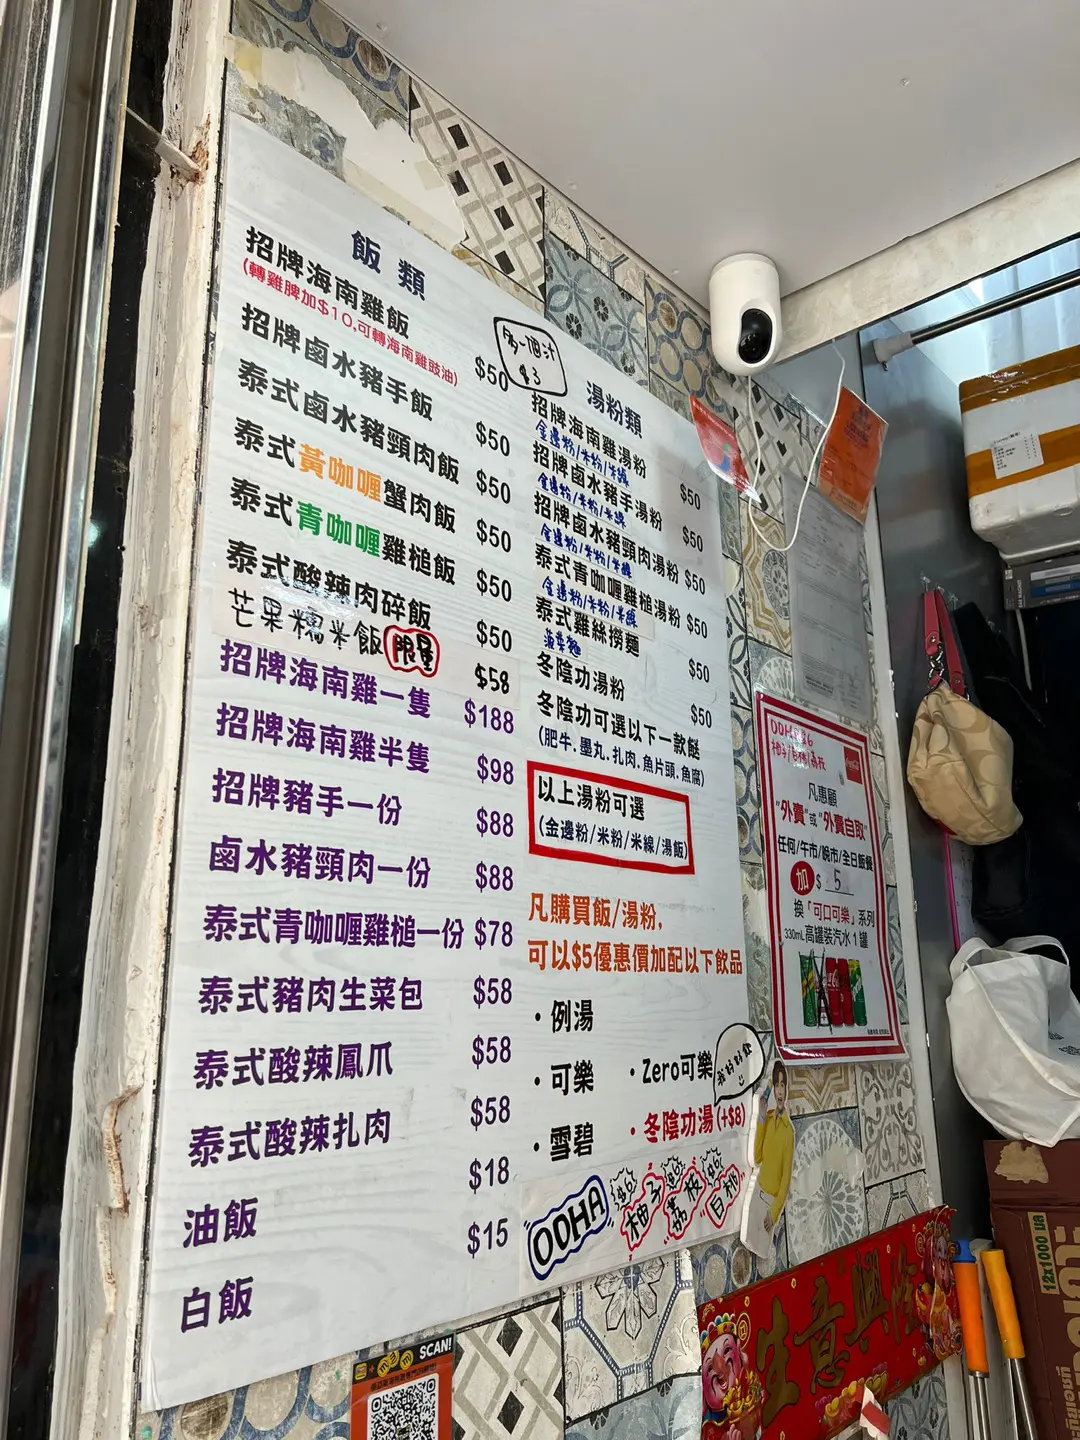 飯類
招牌海南雞飯 $50
(轉雞脾加$10,可轉海南雞豉油)
招牌鹵水豬手飯 $50
泰式鹵水豬頸肉飯 $50
泰式黃咖喱蟹肉飯 $50
泰式青咖喱雞槌飯 $50
泰式酸辣肉碎飯 $50
芒果糯米飯 限量 $58
招牌海南雞一隻 $188
招牌海南雞半隻 $98
招牌豬手一份 $88
鹵水豬頸肉一份 $88
泰式青咖喱雞槌一份 $78
泰式豬肉生菜包 $58
泰式酸辣鳳爪 $58
泰式酸辣扎肉 $58
油飯 $18
白飯 $15
多一個汁
$3
湯粉類
招牌海南雞湯粉 $50
金邊粉/米粉/米線
招牌鹵水豬手湯粉 $50
金邊粉/米粉/米線
招牌鹵水豬頸肉湯粉 $50
金邊粉/米粉/米線
泰式青咖喱雞槌湯粉 $50
金邊粉/米粉/米線
泰式雞絲撈麵 $50
冬陰功湯粉 $50
冬陰功可選以下一款餸
(肥牛.墨丸.扎肉.魚片頭.魚腐)
以上湯粉可選
(金邊粉/米粉/米線/湯飯)
凡購買飯/湯粉,
可以$5優惠價加配以下飲品
·例湯
·可樂 ·Zero可樂
·雪碧 ·冬陰功湯(+$8)
我好好飲
OOHA
$6 柚子
$6 荔枝
$6 白桃
OOHA $6
凡惠顧
"外賣"或"外賣自取"
任何/午市/晚市/全日飯餐
加 $ 5
換「可口可樂」系列
330mL高罐裝汽水1罐
SCAN!
生意興隆
12x1000